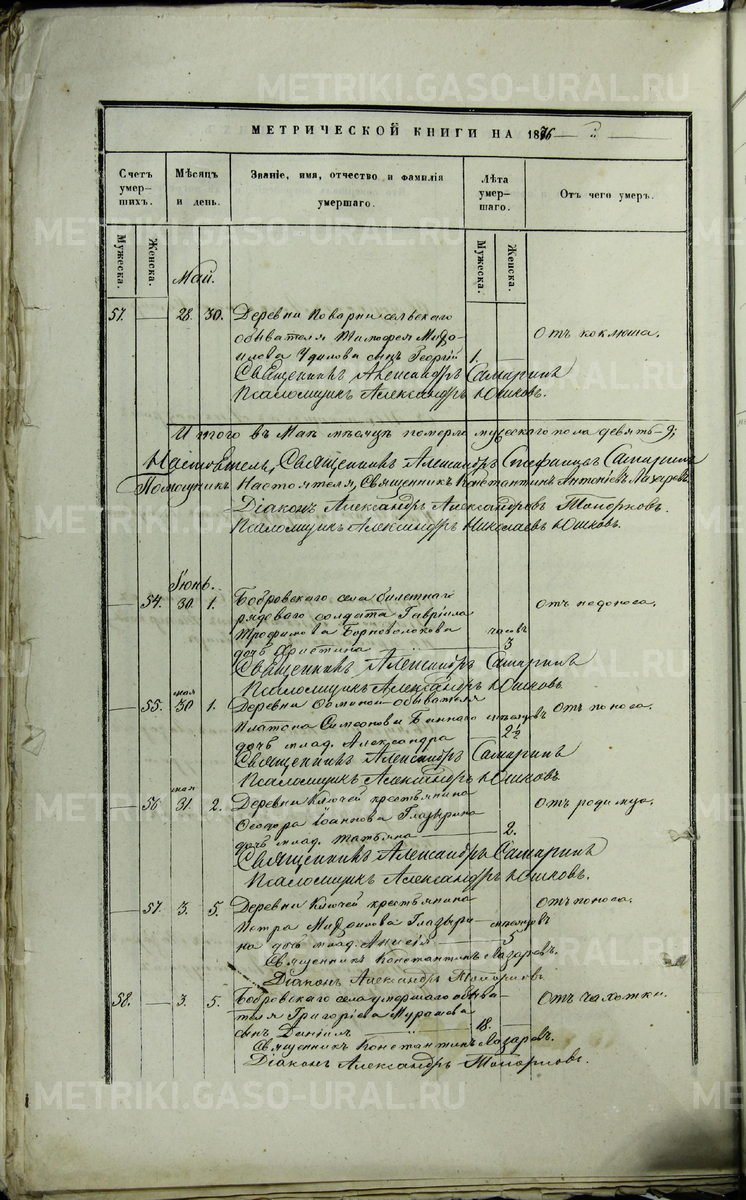 МЕТРИЧЕСКОЙ КНИГИ НА 1876
Счетъ умер- шихъ. Мѣсяцъ и день. Званіе, имя, отчество и фамилія умершаго. Лѣта умер- шаго. Отъ чего умеръ.
Мужеска. Женска. Мужеска. Женска.
Май.
57. 28. 30. Деревни Поварни сельскаго
обывателя Тимофея Михаи-
лова Удилова сынъ Георгій 1. Отъ коклюша.
Священникъ Александръ Самаринъ
Псаломщикъ Александръ Юшковъ.
Итого въ Маѣ мѣсяцѣ померло мужескаго пола девять-9;
Настоятель, Священникъ Александръ Стефановъ Самаринъ
Помощникъ Настоятеля, Священникъ Константинъ Антоніевъ Лазаревъ
Діаконъ Александръ Александровъ Топорковъ.
Псаломщикъ Александръ Николаевъ Юшковъ.
Іюнь.
54. 30. 1. Бобровскаго села билетнаго
рядоваго солдата Гавріила
Трофимова
дочь Христина часовъ 3 Отъ недоноса.
Священникъ Александръ Самаринъ
Псаломщикъ Александръ Юшковъ
мая
55. 30 1. Деревни обывателя
Платона Симеонова
дочь млад. Александра мѣсяцовъ 2½ Отъ поноса.
Священникъ Александръ Самаринъ
Псаломщикъ Александръ Юшковъ
мая
56 31 2. Деревни Ключей крестьянина
Ѳеодора Іоаннова Глазырина
дочь млад. Татьяна 2. Отъ родимца.
Священникъ Александръ Самаринъ
Псаломщикъ Александръ Юшковъ.
57. 3. 5. Деревни Ключей крестьянина
Петра Михайлова Глазыри-
на дочь млад. Анисія мѣсяцовъ 5 Отъ поноса.
Священникъ Константинъ Лазаревъ.
Діаконъ Александръ Топорковъ
58. 3. 5. Бобровскаго села умершаго обыва-
теля Григорія Мурашева
сынъ Даніилъ 18. Отъ чахотки.
Священникъ Константинъ Лазаревъ.
Діаконъ Александръ Топорковъ.
METRIKI.GASO-URAL.RU